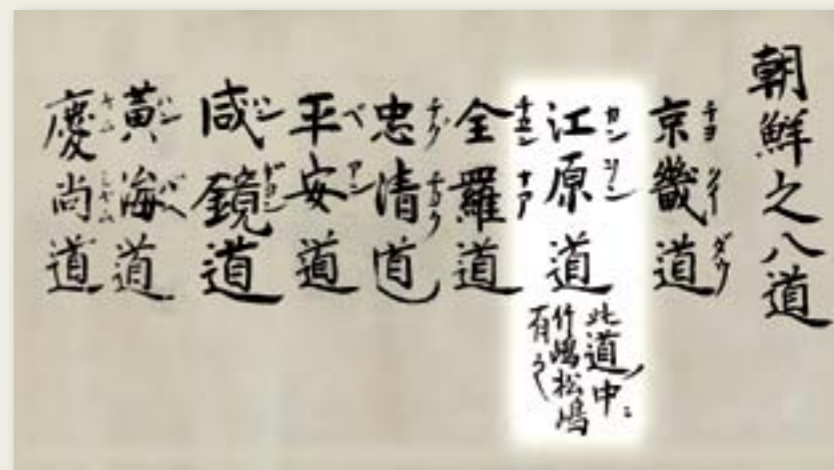 朝鮮之八道
京畿道
江原道
此道ノ中ニ
竹嶋松嶋
有之
全羅道
忠清道
平安道
咸鏡道
黃海道
慶尚道